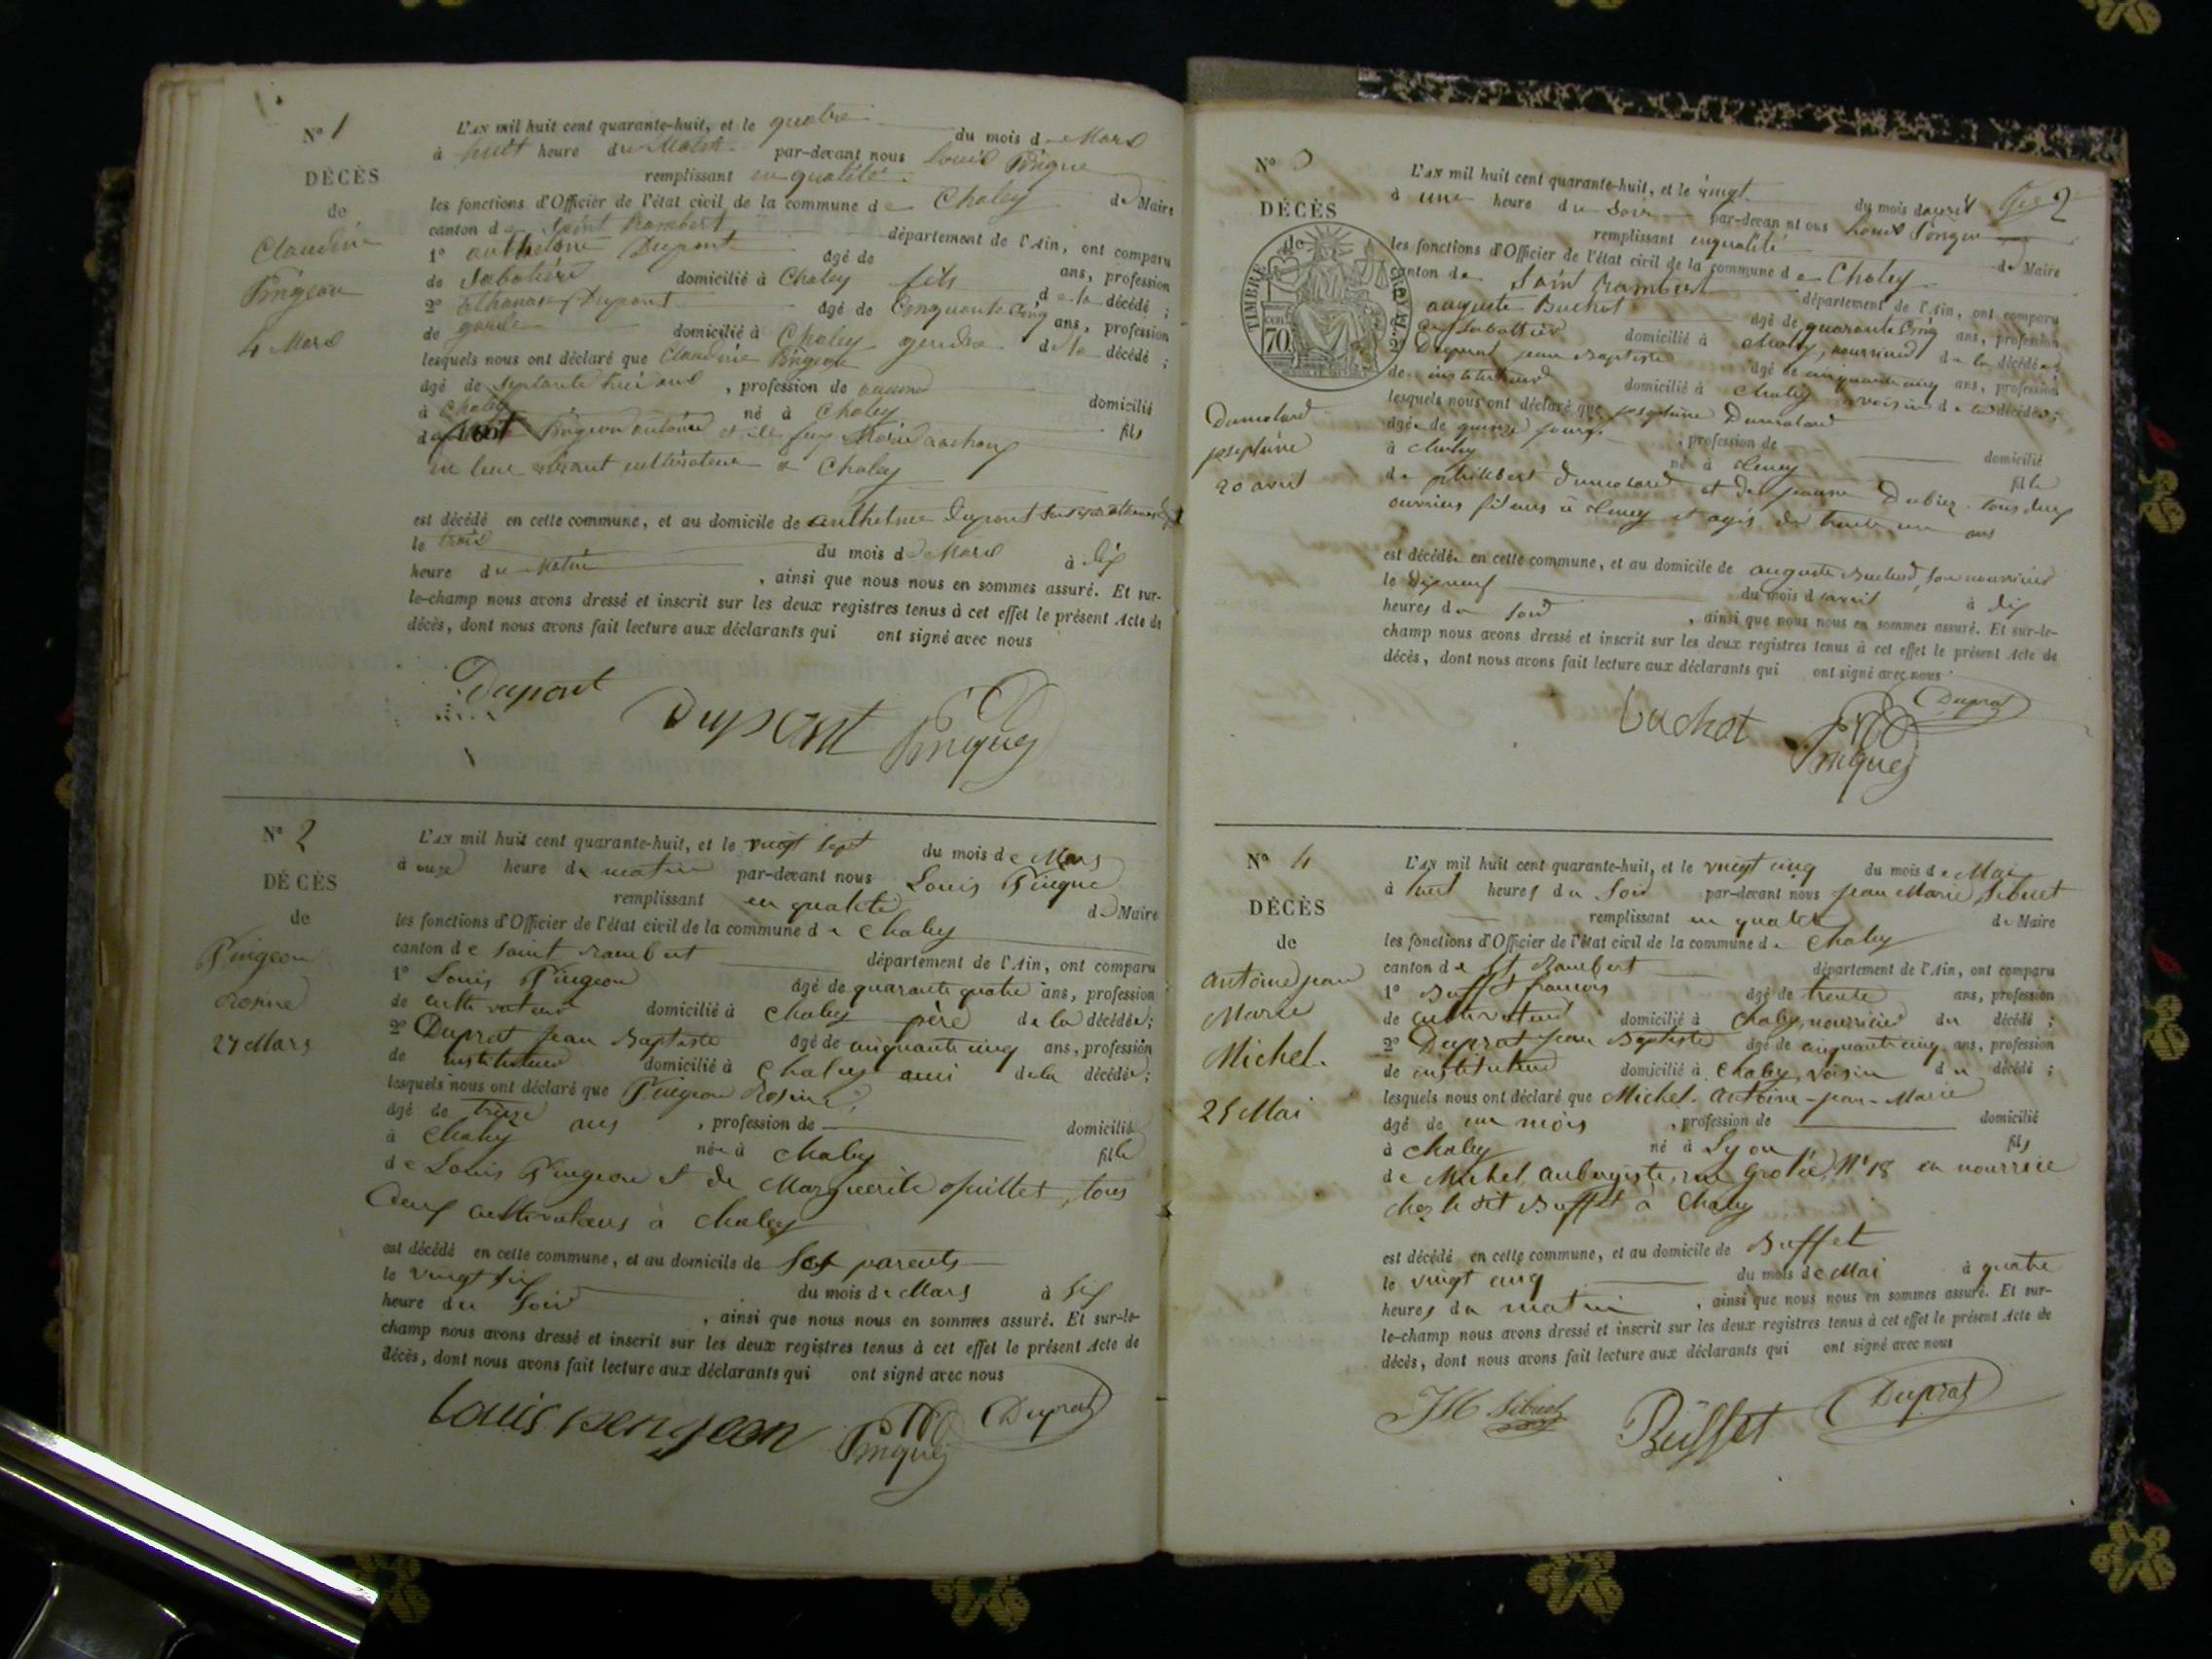 N° 1
DÉCÈS
de
Claudine
Pingeon
4 Mars
L'AN mil huit cent quarante-huit, et le quatre du mois de Mars
à huit heure du Matin par-devant nous Louis Pingue
remplissant en qualité de Maire
les fonctions d'Officier de l'état civil de la commune de Chaley
canton de Saint Rambert département de l'Ain, ont comparu
1° anthelme Dupont âgé de ans, profession
de Sabotier domicilié à Chaley fils de la décédé ;
2° athanase Dupont âgé de Cinquante Cinq ans, profession
de garde domicilié à Chaley gendre de la décédé ;
lesquels nous ont déclaré que Claudine Pingeon
âgé de septante huit ans , profession de aucune domicilié
à Chaley né à Chaley fils
Pingeon antoine et de feu Marie
en leur vivant cultivateur à Chaley
est décédé en cette commune, et au domicile de anthelme Dupont
le trois du mois de Mars à dix
heure du Matin , ainsi que nous nous en sommes assuré. Et sur-
le-champ nous avons dressé et inscrit sur les deux registres tenus à cet effet le présent Acte de
décès, dont nous avons fait lecture aux déclarants qui ont signé avec nous
Dupont Dupont Pingue
N° 2
DÉCÈS
de
Pingeon
Rosine
27 Mars
L'AN mil huit cent quarante-huit, et le vingt sept du mois de Mars
à onze heure du matin par-devant nous Louis Pingue
remplissant en qualité de Maire
les fonctions d'Officier de l'état civil de la commune de Chaley
canton de Saint Rambert département de l'Ain, ont comparu
1° Louis Pingeon âgé de quarante quatre ans, profession
de cultivateur domicilié à Chaley père de la décédée ;
2° Duprat Jean Baptiste âgé de cinquante cinq ans, profession
de instituteur domicilié à Chaley ami de la décédée ;
lesquels nous ont déclaré que Pingeon Rosine
âgé de treize ans , profession de domicilié
à Chaley née à Chaley fille
de Louis Pingeon et de Marguerite Juillet, tous
deux cultivateurs à Chaley
est décédé en cette commune, et au domicile de Ses parents
le vingt six du mois de Mars à Six
heure du Soir , ainsi que nous nous en sommes assuré. Et sur-le-
champ nous avons dressé et inscrit sur les deux registres tenus à cet effet le présent Acte de
décès, dont nous avons fait lecture aux déclarants qui ont signé avec nous
Louis pengeon Pingue Duprat
2
N° 3
DÉCÈS
de
TIMBRE ROYAL
cent 70
Dumolard
josephine
20 avril
L'AN mil huit cent quarante-huit, et le vingt du mois d'avril
à une heure du soir par-devant nous Louis Pingue
remplissant en qualité de Maire
les fonctions d'Officier de l'état civil de la commune de Chaley
canton de Saint Rambert département de l'Ain, ont comparu
auguste Buchot âgé de quarante Cinq ans, profession
de Sabottier domicilié à Chaley, nourricier de la décédée ;
2° Duprat jean Baptiste âgé de cinquante cinq ans, profession
de instituteur domicilié à Chaley voisin de la décédée ;
lesquels nous ont déclaré que josephine Dumolard
âgée de quinze jours , profession de domicilié
à Chaley né à Cleney fille
de philibert Dumolard et de jeanne Dubiez tous deux
ouvriers à Cleney et agés de trente un ans
est décédée en cette commune, et au domicile de auguste Buchot, son nourricier
le dixneuf du mois d'avril à dix
heures du soir , ainsi que nous nous en sommes assuré. Et sur-le-
champ nous avons dressé et inscrit sur les deux registres tenus à cet effet le présent Acte de
décès, dont nous avons fait lecture aux déclarants qui ont signé avec nous
buchot Pingue Duprat
N° 4
DÉCÈS
de
Antoine jean
Marie
Michel.
25 Mai
L'AN mil huit cent quarante-huit, et le vingt cinq du mois de Mai
à huit heures du Soir par-devant nous jean Marie Sibuet
remplissant en qualité de Maire
les fonctions d'Officier de l'état civil de la commune de Chaley
canton de St Rambert département de l'Ain, ont comparu
1° Buffet françois âgé de trente ans, profession
de cultivateur domicilié à Chaley, nourricier du décédé ;
2° Duprat Jean Baptiste âgé de cinquante cinq ans, profession
de instituteur domicilié à Chaley, voisin du décédé ;
lesquels nous ont déclaré que Michel. Antoine-jean-Marie
âgé de un mois , profession de domicilié
à Chaley né à Lyon fils
de Michel, aubergiste, rue Grolée, N° 18 en nourrice
chez le dit Buffet à Chaley
est décédé en cette commune, et au domicile de Buffet
le vingt cinq du mois de Mai à quatre
heures du matin , ainsi que nous nous en sommes assuré. Et sur-
le-champ nous avons dressé et inscrit sur les deux registres tenus à cet effet le présent Acte de
décès, dont nous avons fait lecture aux déclarants qui ont signé avec nous
JM Sibuet Buffet Duprat